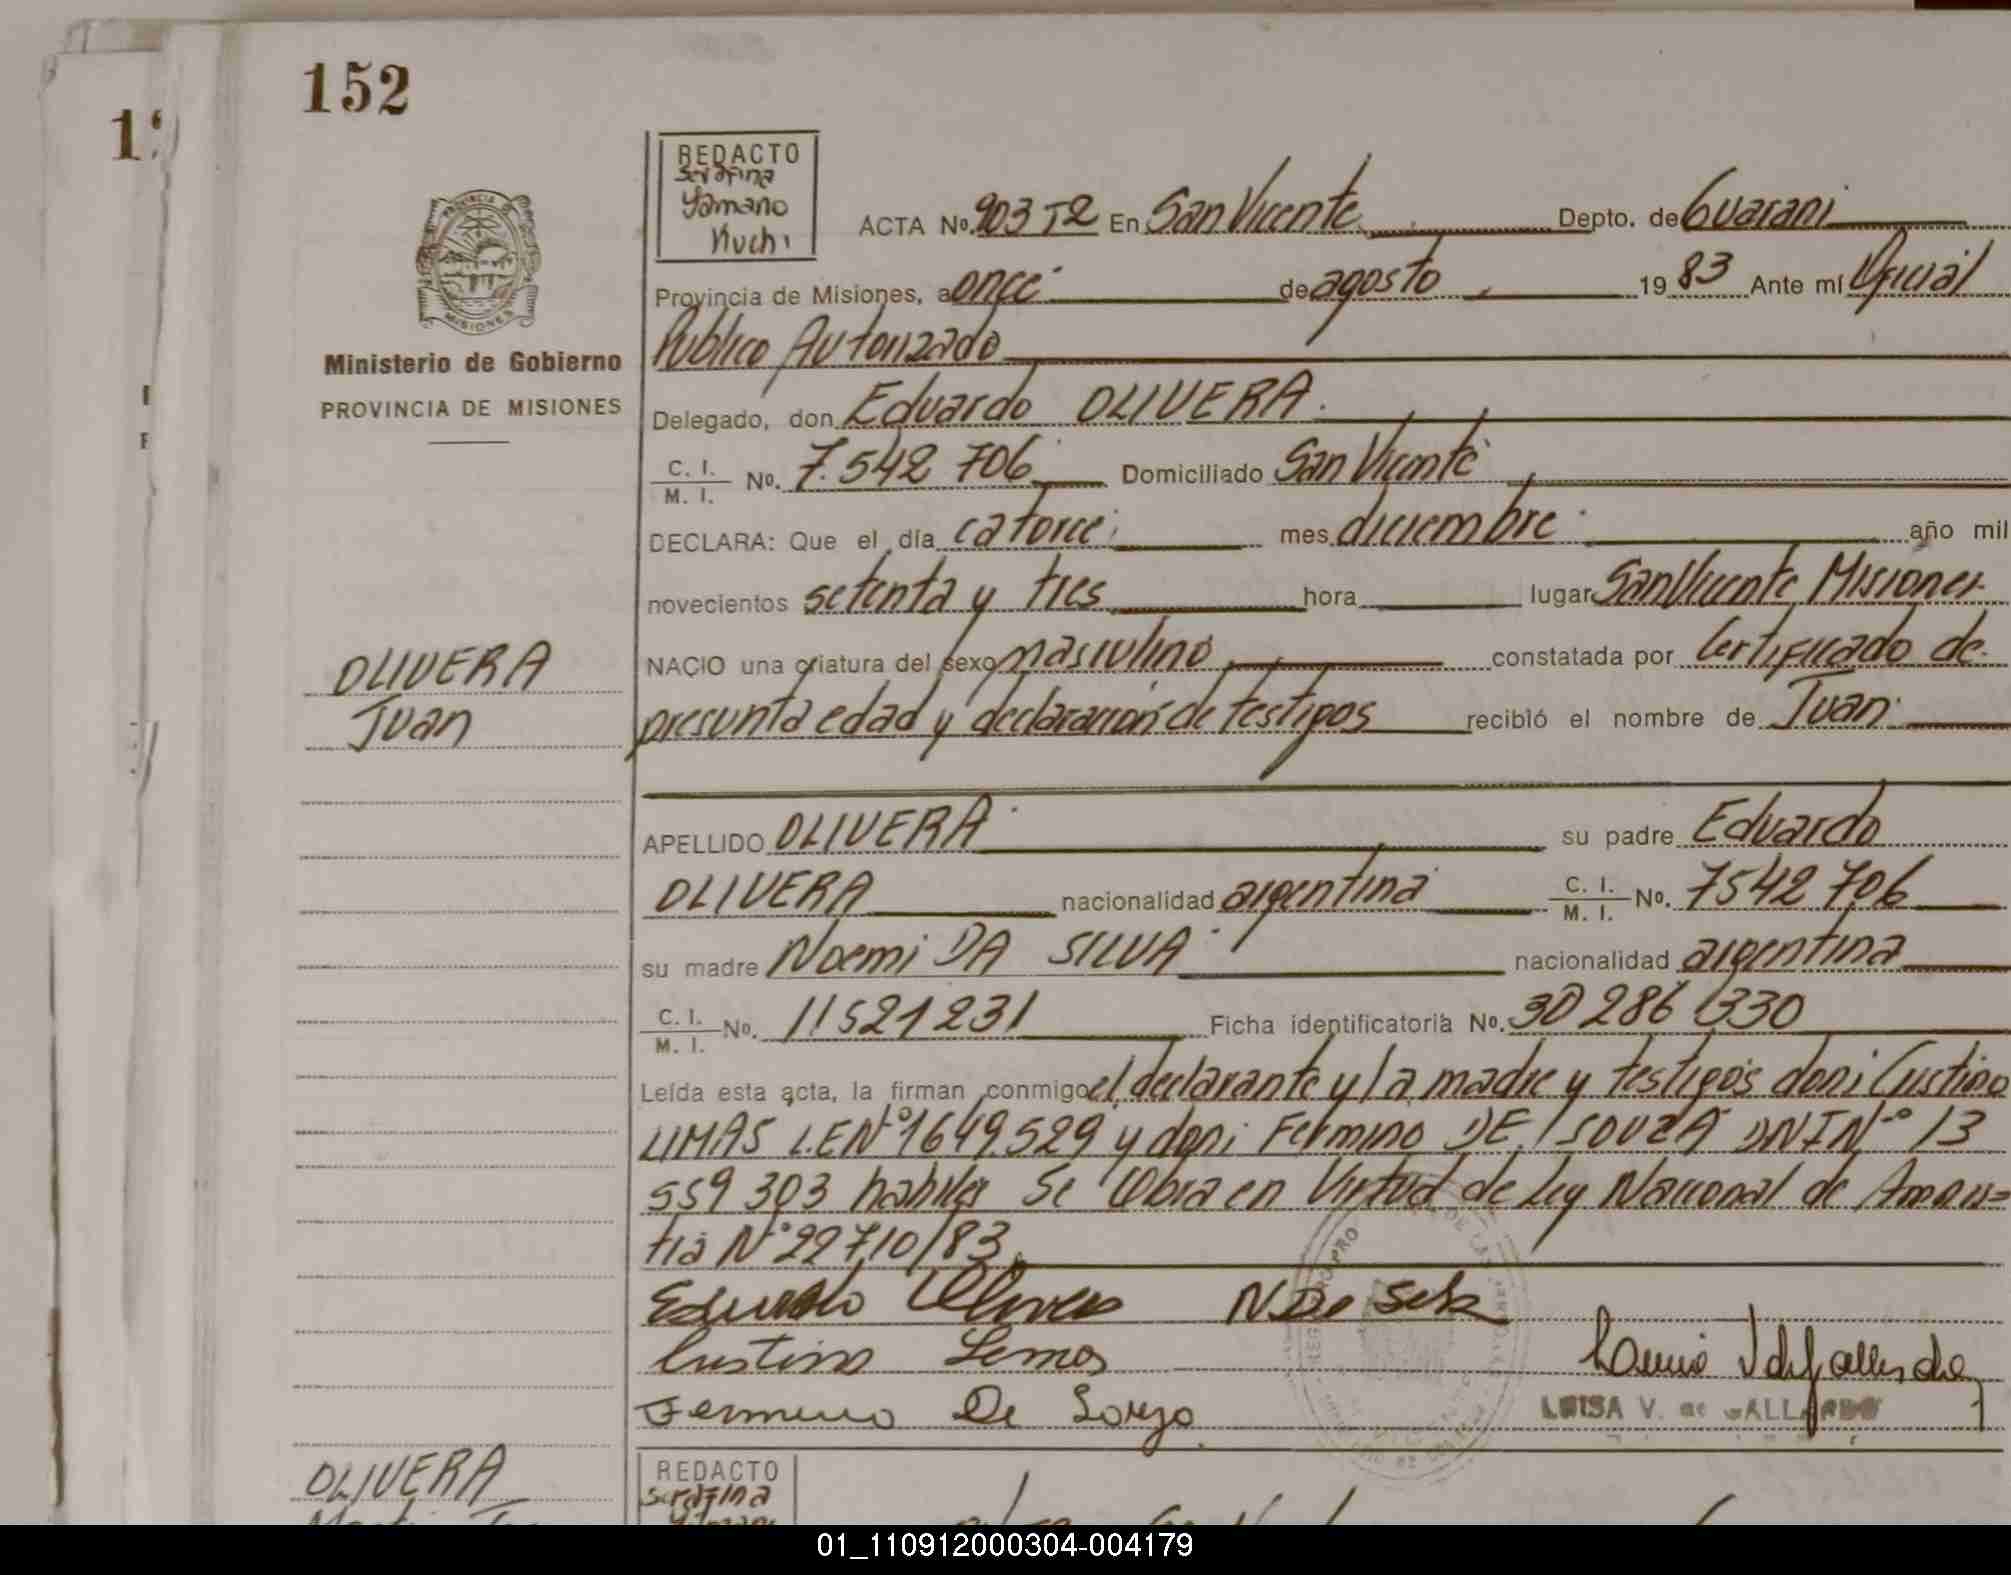 152
REDACTO
Serafina
Yamano
Kuchi
PROVINCIA DE
MISIONES
Ministerio de Gobierno
PROVINCIA DE MISIONES
ACTA No. 903 T2 En San Vicente Depto. de Guarani
Provincia de Misiones, a once de agosto 1983 Ante mí Oficial
Publico Autorizado
Delegado, don Eduardo OLIVERA
C. I. / M. I. No. 7.542 706 Domiciliado San Vicente
DECLARA: Que el día catorce mes diciembre año mil
novecientos setenta y tres hora lugar San Vicente Misiones
OLIVERA
Juan
NACIO una criatura del sexo masculino constatada por Certificado de
presunta edad y declaracion de testigos recibió el nombre de Juan
APELLIDO OLIVERA su padre Eduardo
OLIVERA nacionalidad argentina C. I. / M. I. No. 7542 706
su madre Noemi DA SILVA nacionalidad argentina
C. I. / M. I. No. 11521231 Ficha identificatoria No. 30 286 330
Leída esta acta, la firman conmigo el declarante y la madre y testigos don: Custino
LIMAS L.E Nº 1649.529 y don: Fermino DE SOUZA DNI Nº 13
559 303 habiles Se Obra en Virtud de Ley Nacional de Amnis=
tia Nº 22710/83
Eduardo Olivera N. Da Silva
Custino Lemos
Fermino De Souza
LUISA V. de GALLARDO
OLIVERA
REDACTO
Serafina
01_110912000304-004179